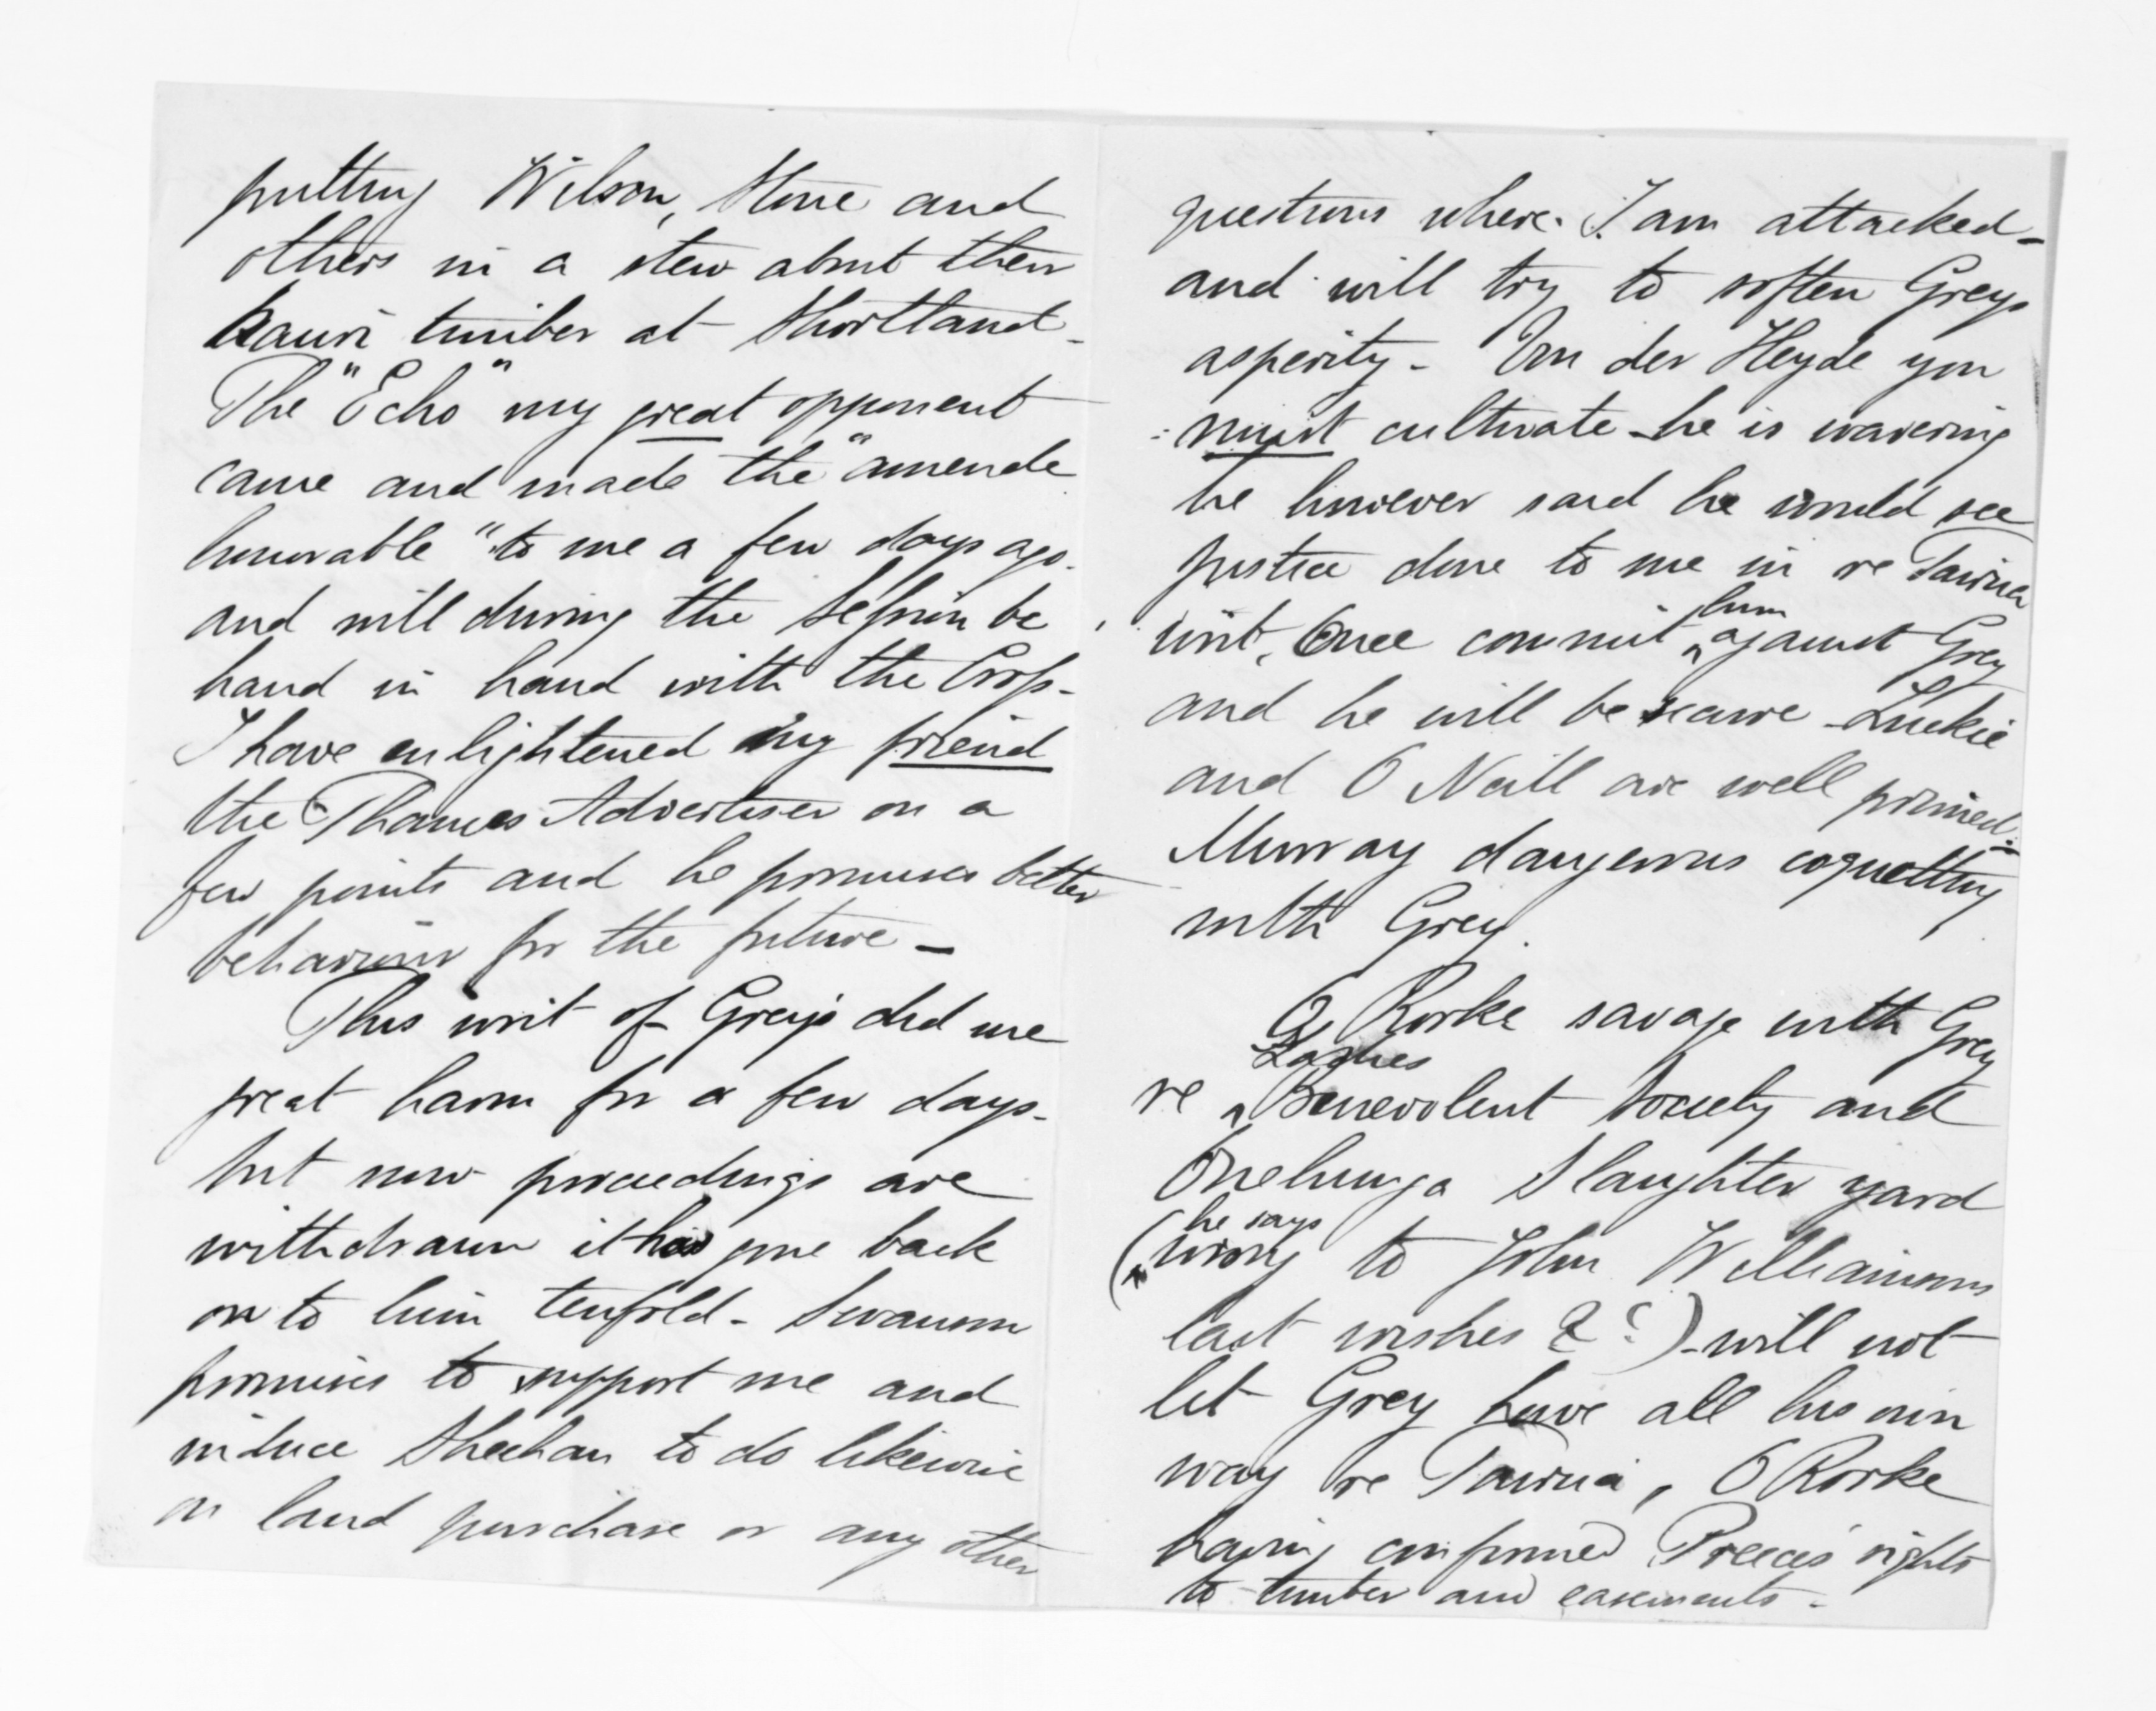 putting Wilson, Stone and
others in a stew about their
kauri timber at Shortland -
The "Echo" my great opponent
came and made the "amende
honorable" to me a few days ago.
and will during the Session be
hand in hand with the Cross -
I have enlightened my friend
the Thames Advertiser on a
few points and he promises better
behaviour for the future -
This writ of Grey's did me
great harm for a few days -
but now proceedings are
withdrawn it has gone back
on to him tenfold - Swanson
promises to support me and
induce Sheehan to do likewise
on land purchase or any other
questions where I am attacked -
and will try to soften Greys
asperity - Von der Heyde you
must cultivate - he is wavering
he however said he would see
justice done to me in re Tairua
writ. Once commit him against Grey
and he will be secure - Luckie
and O Neill are well primed -
Murray dangerous coquetting
with Grey.
O Rorke savage with Grey
re Ladies Benevolent Society and
Onehunga Slaughter yard
(he says wrong to John Williamsons
last wishes ? ?) - will not
let Grey have all his own
way re Tairua, O Rorke
having confirmed Preeces' rights
to timber and easements -